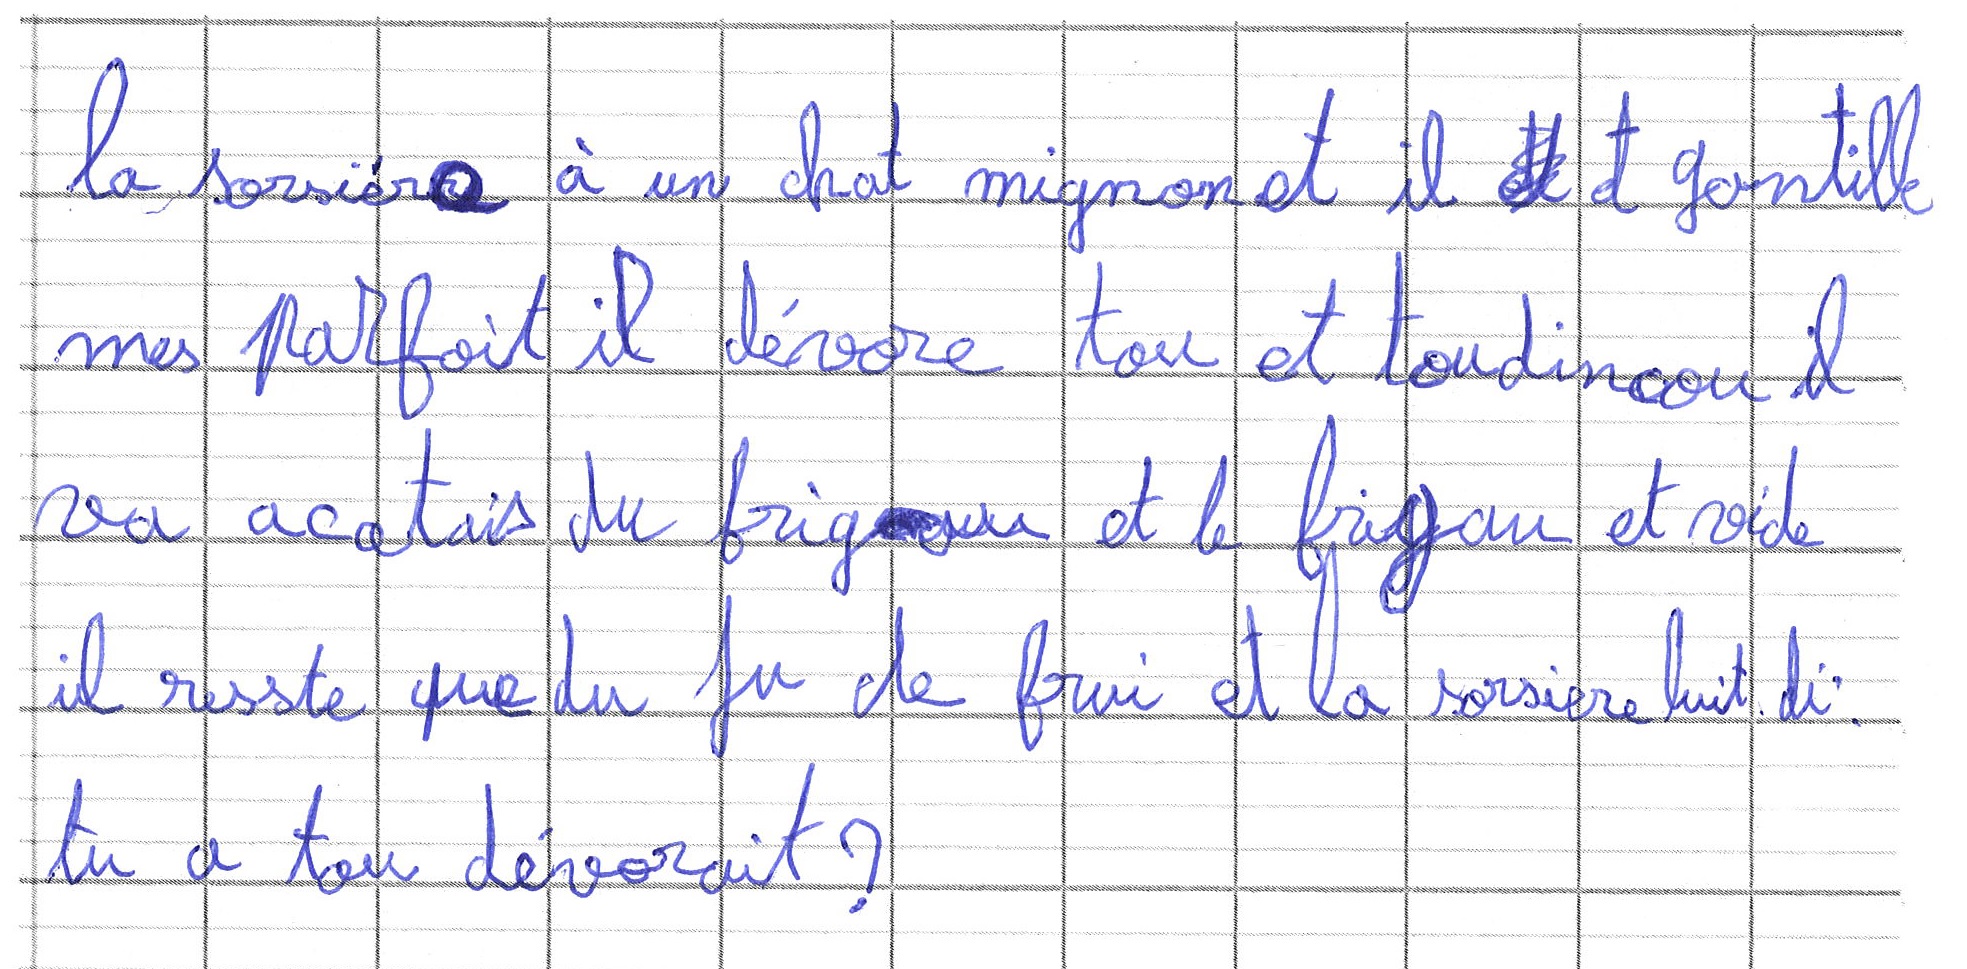 la sorsière à un chat mignon et il et gentille
mes parfoit il dévore tou et toudincou il
va acotais du frigau et le frigau et vide
il resste que du ju de frui et la sorsiere luit di :
tu a tou dévorait ?